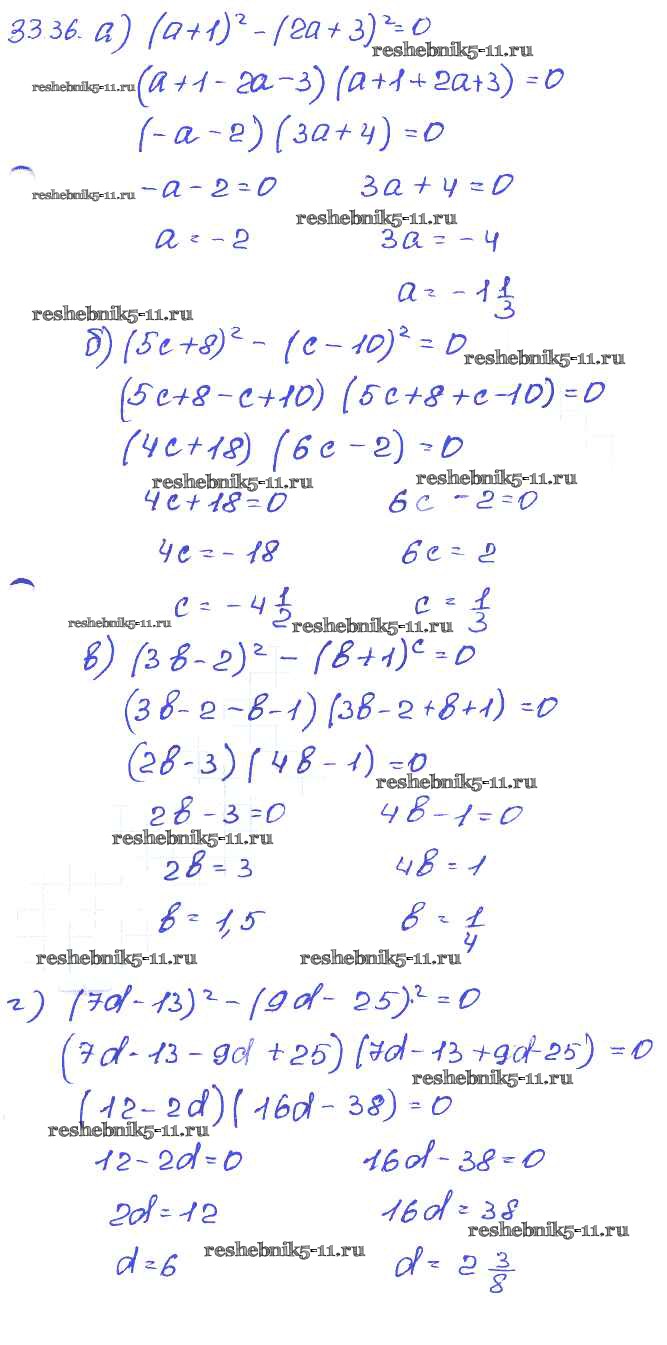 33.36. а) (a+1)² - (2a+3)² = 0
reshebnik5-11.ru
reshebnik5-11.ru (a+1-2a-3) (a+1+2a+3) = 0
(-a-2) (3a+4) = 0
reshebnik5-11.ru -a-2=0 3a+4=0
reshebnik5-11.ru
a = -2 3a = -4
a = -1 1/3
reshebnik5-11.ru
б) (5c+8)² - (c-10)² = 0
reshebnik5-11.ru
(5c+8-c+10) (5c+8+c-10) = 0
(4c+18) (6c-2) = 0
reshebnik5-11.ru reshebnik5-11.ru
4c+18=0 6c-2=0
4c = -18 6c = 2
c = -4 1/2 c = 1/3
reshebnik5-11.ru reshebnik5-11.ru
в) (3b-2)² - (b+1)ᶜ = 0
(3b-2-b-1) (3b-2+b+1) = 0
(2b-3) (4b-1) = 0
reshebnik5-11.ru
2b-3=0 4b-1=0
reshebnik5-11.ru
2b = 3 4b = 1
b = 1,5 b = 1/4
reshebnik5-11.ru reshebnik5-11.ru
г) (7d-13)² - (9d-25)² = 0
(7d-13-9d+25) (7d-13+9d-25) = 0
reshebnik5-11.ru
(12-2d) (16d-38) = 0
reshebnik5-11.ru
12-2d=0 16d-38=0
2d=12 16d=38
reshebnik5-11.ru
d=6 reshebnik5-11.ru d = 2 3/8